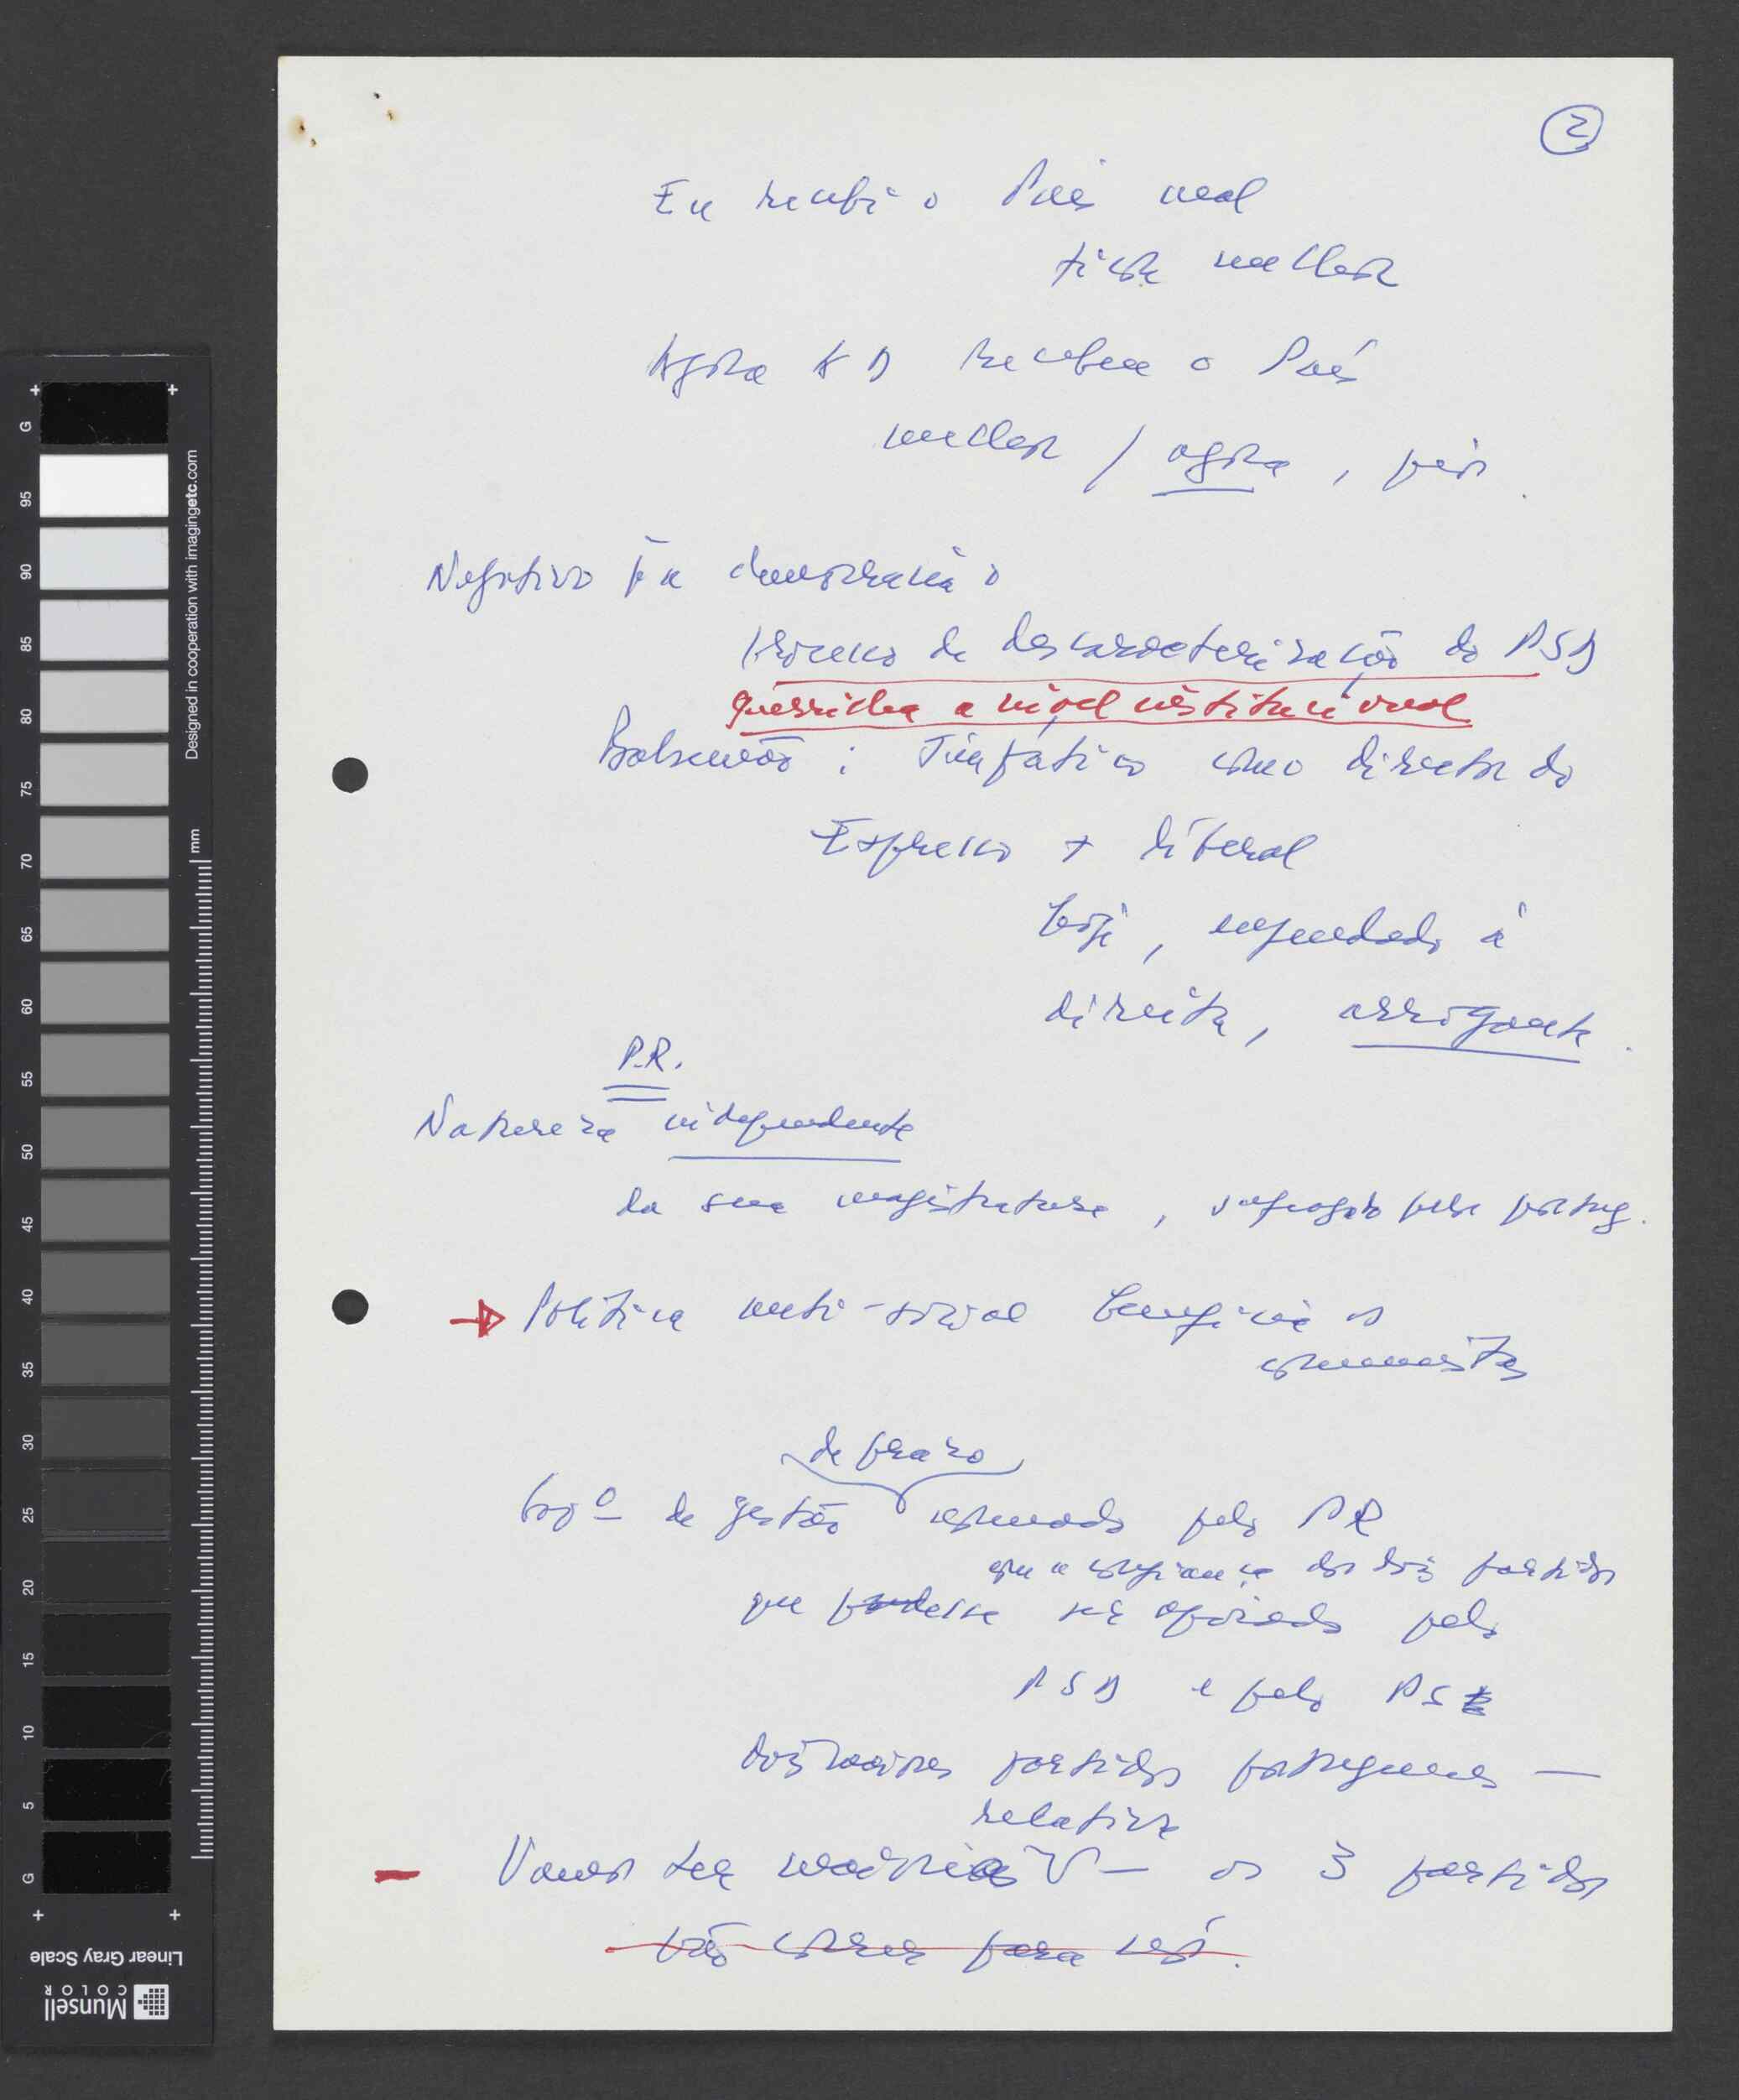 2
Eu recebi o País mal
ficou melhor
Agora AD recebeu o País
melhor / agora, pior.
Negativo pª democracia o
Processo de descaracterização do PSD
guerrilha a nível institucional
Balsemão: Simpático como director do
Expresso + liberal
hoje, enfeudado à
direita, arrogante.
P.R.
Natureza independente
da sua magistratura, sufragado pelos portug.
→ Política anti-social beneficia os
comunistas
de prazo
Govº de gestão formado pelo PR
com a confiança dos dois partidos
que pudesse ser apoiado pelo
PSD e pelo PS
dois maiores partidos portugueses —
relativa
— Vamos ter maioria — os 3 partidos
vão correr para nós.
G 95 90 85 80 75 70 65 60 55 50 45 40 35 30 25 20 15 10 5 G
Designed in cooperation with imagingetc.com
mm
Linear Gray Scale
Munsell
COLOR